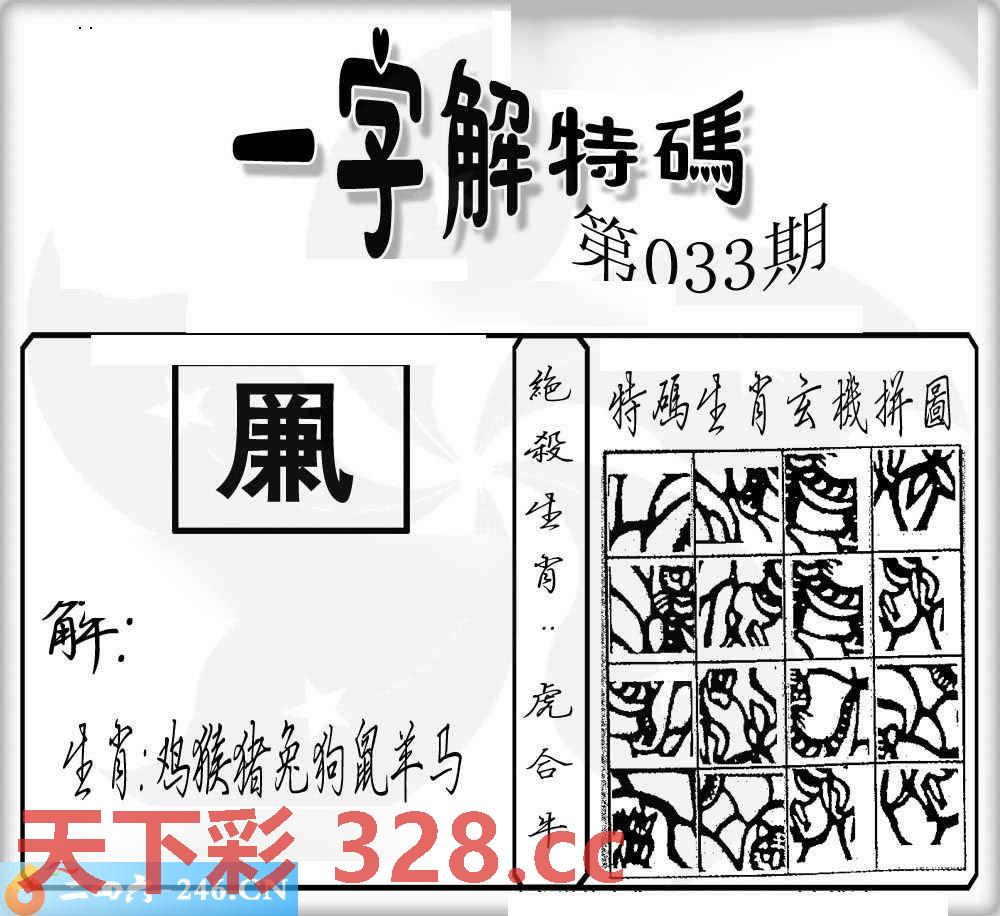 一字解特碼
第033期
凲
解:
生肖:鸡猴猪兔狗鼠羊马
絶殺生肖:虎合牛
特碼生肖玄機拼圖
天下彩 328.cc
二四六 246.CN